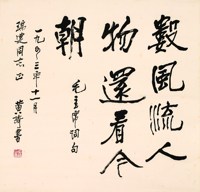 數風流人
物還看今
朝
毛主席詞句
一九 三年十一月
同志正
書